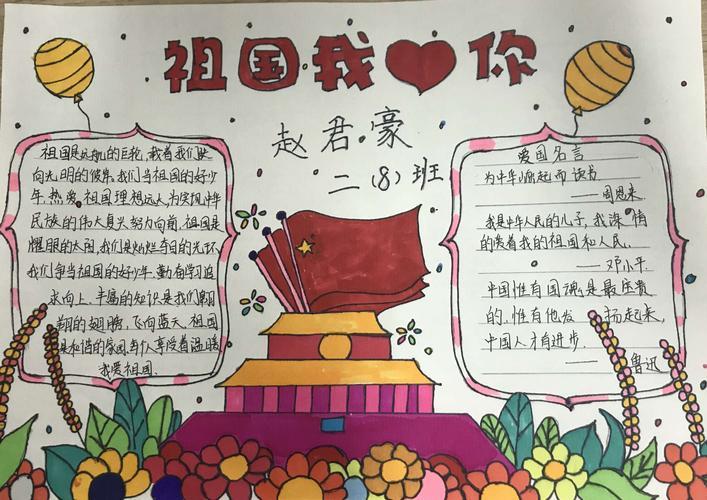 祖国我❤你
赵君豪
二(8)班
祖国是远航的巨轮,载着我们驶
向光明的彼岸。我们当祖国的好少
年,热爱祖国理想远大,为实现中华
民族的伟大复兴努力向前。祖国是
耀眼的太阳,我们是灿烂夺目的光环
我们争当祖国的好少年,勤奋学习追
求向上,丰富的知识是我们翱
翔的翅膀,飞向蓝天。祖国
是和谐的家园,每个人享受着温暖
我爱祖国.
爱国名言
为中华崛起而读书
——周恩来.
我是中华人民的儿子,我深情
的爱着我的祖国和人民.
——邓小平.
中国惟有国魂是最庆贵
的.惟有他发 扬起来,
中国人才有进步.
——鲁迅